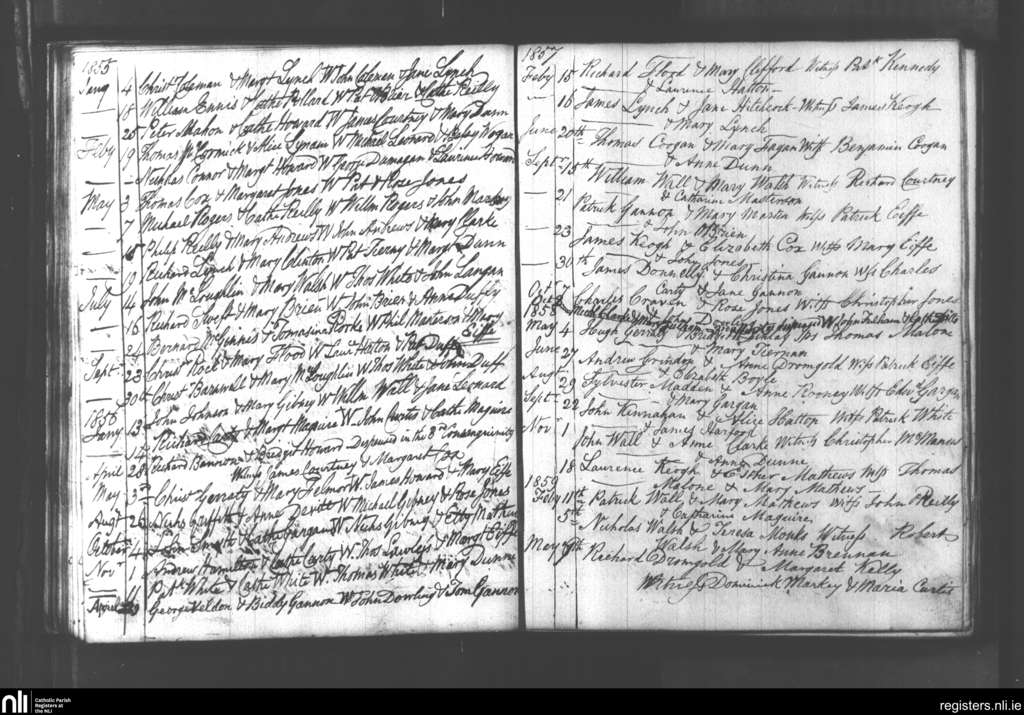 1855
Jany 4 Christr Coleman & Margt Lynch W John Coleman & Jane Lynch
18 William Ennis & Cathe Pollard W Pat & Cathe Reilly
25 Peter Mahon & Cathe Howard W James Courtney & Mary Dunn
Feby 9 Thomas McCormick & Alice Lynam W Michael Leonard & Hogan
19 Nicholas Connor & Margt Howard W Dunagan & Laurence Howard
May 3 Thomas Cox & Margaret Jones W Pat & Rose Jones
7 Michael Rogers & Cathe Reilly W Willm Rogers & John
15 Philip Reilly & Mary Andrews W John Andrews & Mary Clarke
19 Richard Lynch & Mary Clinton W Pat Tierny & Margt Dunn
July 4 John McLoughlin & Mary Walsh W Thos White & John Langan
16 Richard Swift & Mary Brien W John Brien & Anne Duffy
24 Bernard McGinnis & Tomasina Rorke W Phil & Mary
Eiffe
Sept 23 Christ Rock & Mary Flood W Laur Hatton & Pat Duffy
30th Christ Barnwall & Mary McLoughlin W Thos White & John Duff
1856
Jany 13 John Johnson & Mary Gibney W Willm Wall & Jane Leonard
14 Richard Canty & Margt Maguire W John Curtis & Cathe Maguire
April 28 Richard Bannon & Bridget Howard Dispensed in the 3d Consanguinity
Witness James Courtney & Margaret Cox
May 3rd Christ Gerraty & Mary W James Howard & Mary Eiffe
Augt 26 Nichs Griffith & Anne Devitt W Michael Gefney & Rose Jones
October 4 John Smyth & Cathe Gargan W Nichs Gibney & Esty Mathews
Novr 1 Andrew Hamilton & Cathe Carty W Thos Lawless & Margt Eiffe
11 Pat White & Cathe White W Thomas White & Mary Dunne
April 20 George Veldon & Biddy Gannon W John Dowling & Tom Gannon
1857
Feby 15 Richard Flood & Mary Clifford Witness Patk Kennedy
& Laurence Hatton
— 16 James Lynch & Jane Hitchcock Witness James Keogh
& Mary Lynch
June 20th Thomas Coogan & Mary Fagan Witss Benjamin Coogan
& Anne Dunn
Septr 15th William Wall & Mary Walsh Witness Richard Courtney
& Catharin Masterson
— 21 Patrick Gannon & Mary Martin Witss Patrick Eiffe
& John OBrien
— 23 James Keogh & Elizabeth Cox Witss Mary Eiffe
& John Jones
— 30th James Donnelly & Christina Gannon Wss Charles
Carty & Jane Gannon
Oct 7 Charles Craven & Rose Jones Witss Christopher Jones
Oct
1858 & John
May 4 Hugh Gerraty & Bridget Wss Thomas Malone
& Mary Tiernan
June 27 Andrew & Anne Dromgold Witss Patrick Eiffe
& Elizabeth Boyle
Augt 29 Sylvester Madden & Anne Rooney Witss Edwd Gargan
& Mary Gargan
Septr 22 John Kinnahan & Alice Hatton Witss Patrick White
& James Harford
Novr 1 John Wall & Anne Clarke Witness Christopher McManus
& Anne Dunne
18 Laurence Keogh & Esther Mathews Witss Thomas
Malone & Mary Mathews
1859
Feby 11th Patrick Wall & Mary Mathews Witss John Reilly
& Catharine Maguire
5th Nicholas Walsh & Teresa Monks Witness Robert
Walsh & Mary Anne Brennan
May 9th Richard Dromgold & Margaret Kelly
Witness Dominick Markey & Maria Curtis
nli
Catholic Parish
Registers at
the NLI
registers.nli.ie